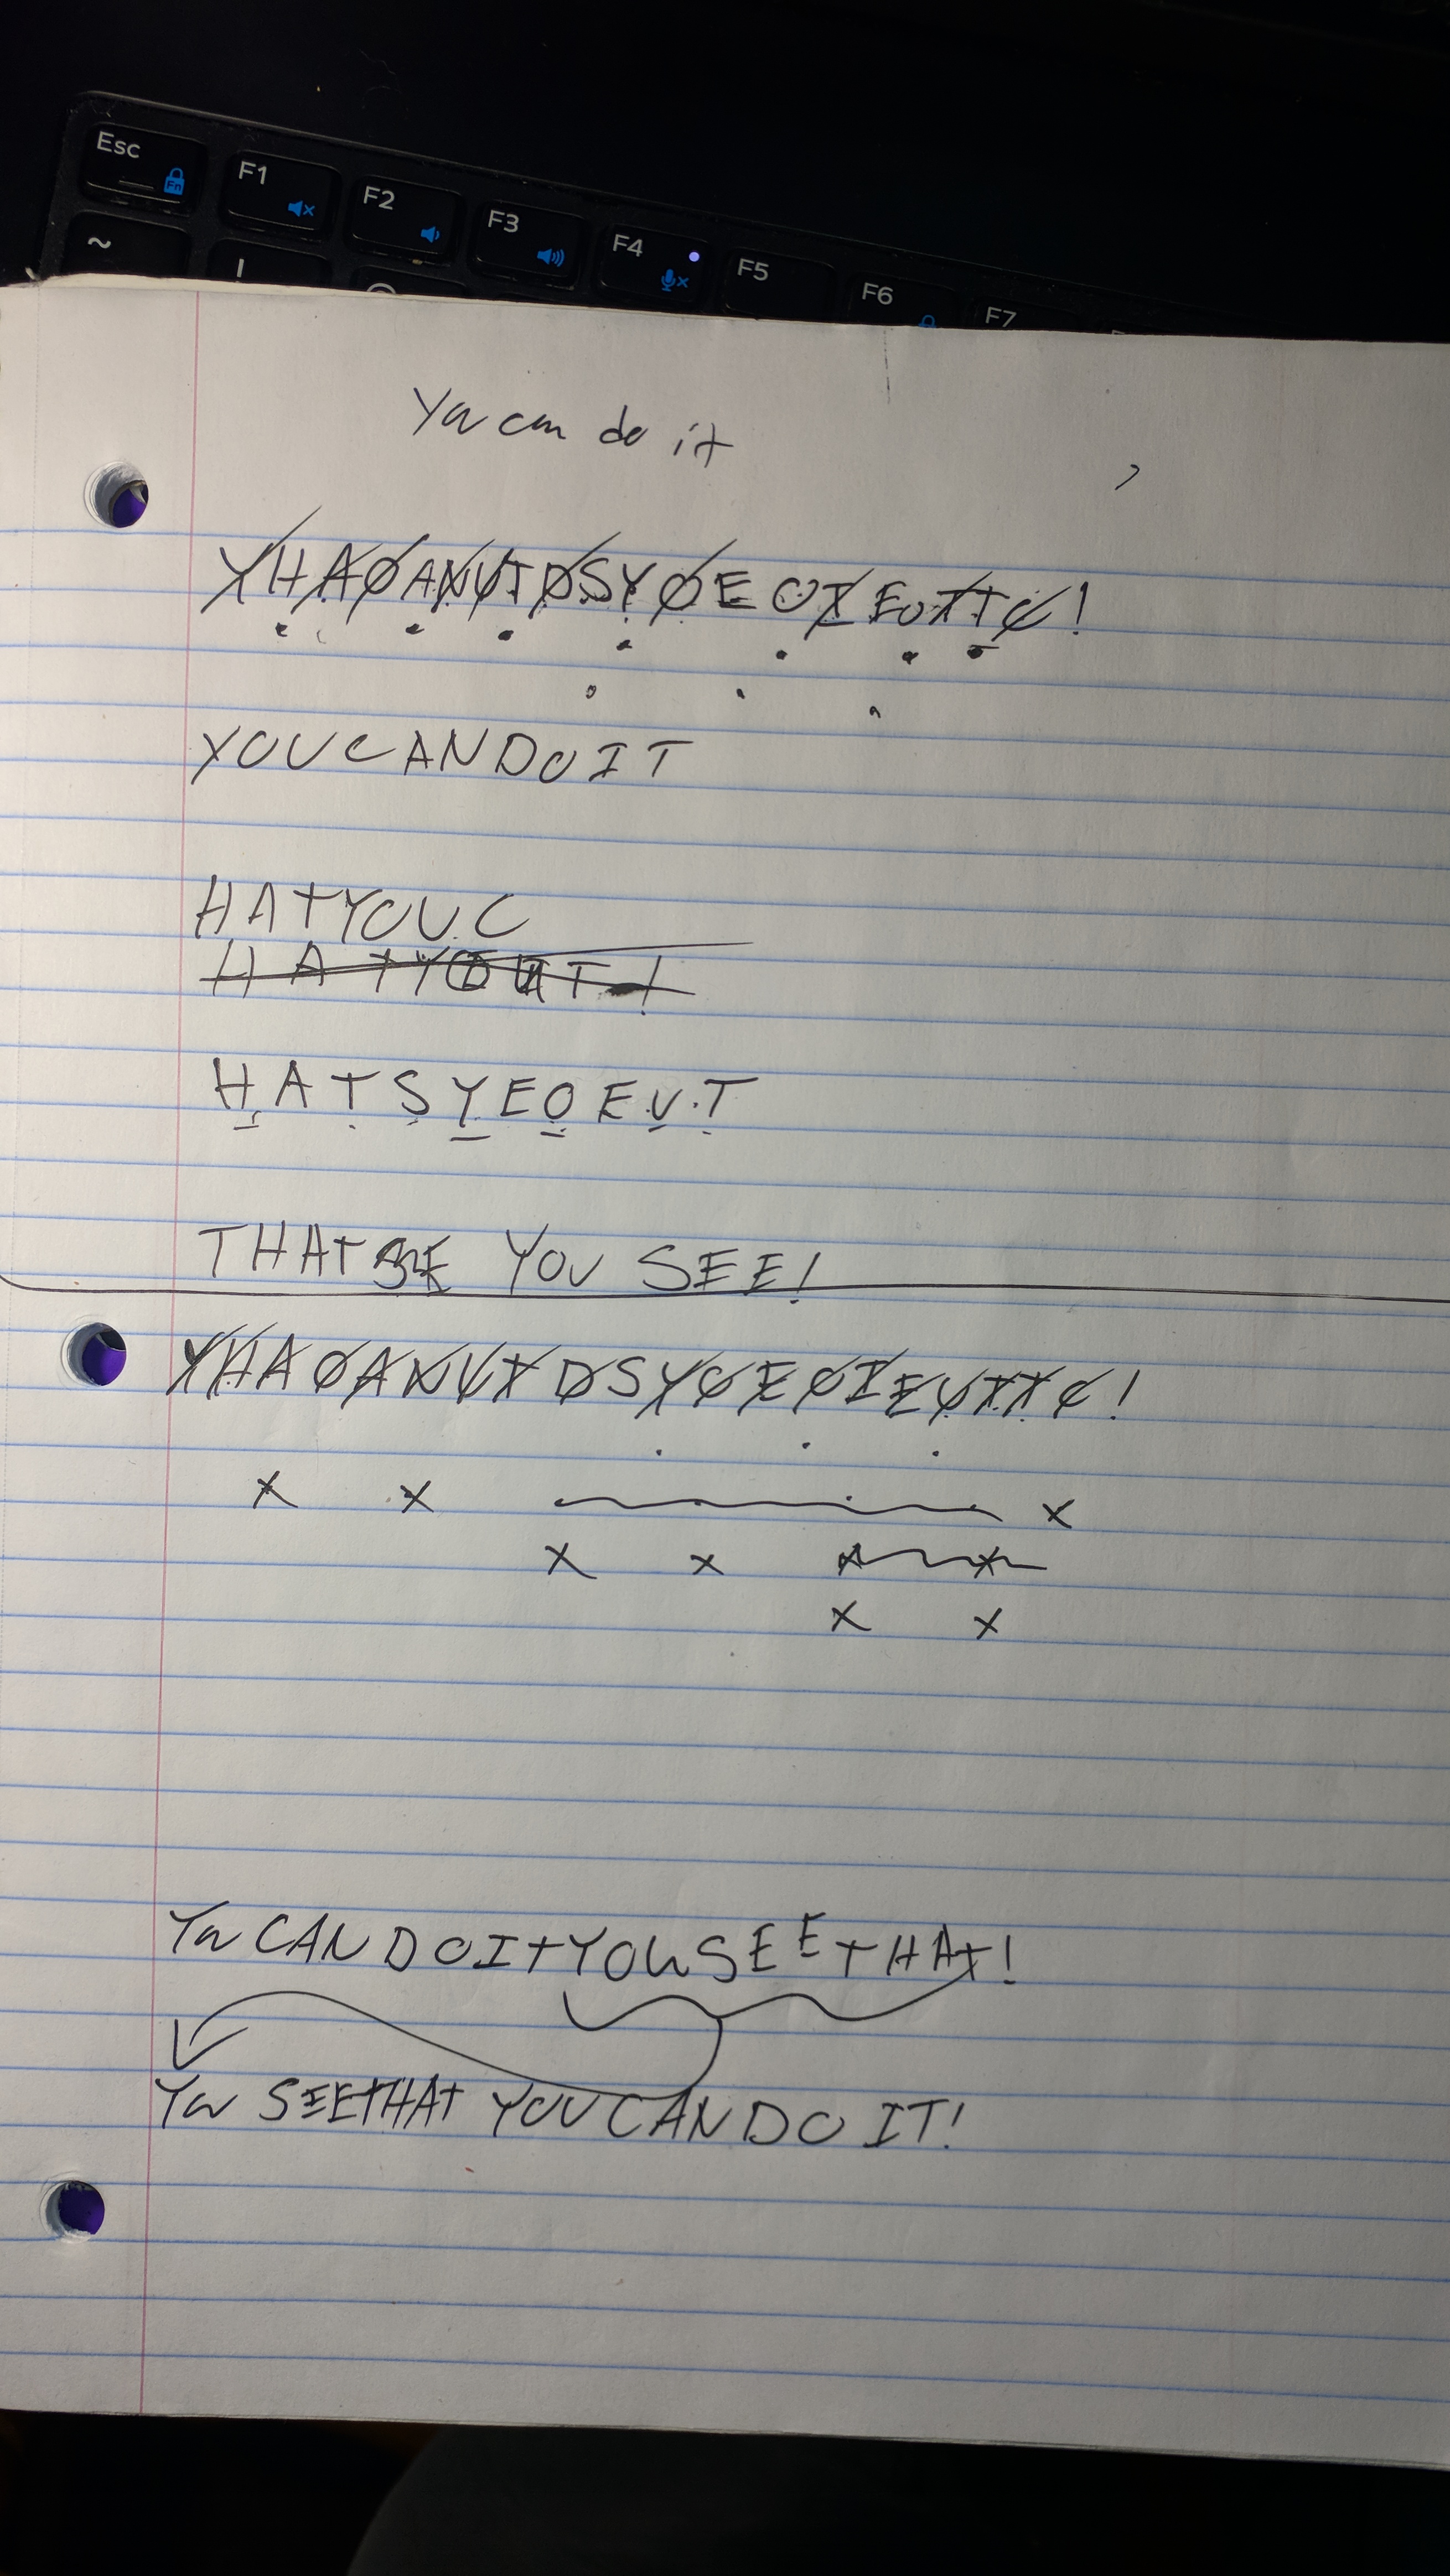 Esc
F1
F2
F3
F4
F5
F6
F7
Fn
~
You can do it
,
YHAOANUTDSYOEOIEUTTC!
YOUCANDOIT
HATYOU.C
HATSYEOEUT
THAT YOU SEE!
YHAOANUTDSYOEOIEUTTC!
x x x
x x x x
x x
You CANDOITYOUSEETHAT!
You SEETHAT YOUCANDO IT!